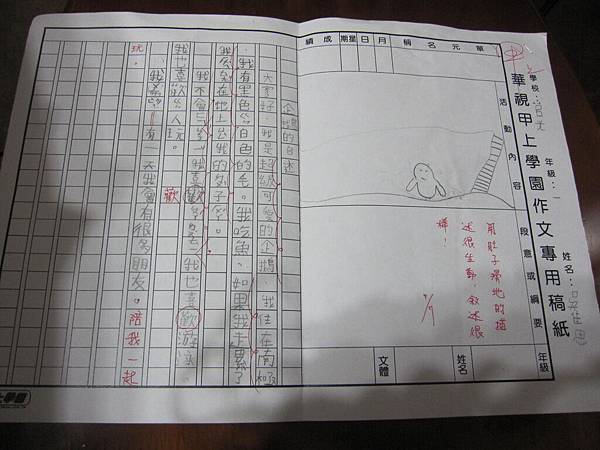 華視甲上學園作文專用稿紙
學校：
年級：一
姓名：
單元名稱
月 日
星期
成績
活動內容
段意或綱要
年級
姓名
文體
用肚子滑地的描
述很生動，敘述很
棒！
企鵝的自述
大家好，我是超級可愛的企鵝，我住在南極
，我有黑色ㄍㄣ白色的毛。我吃魚，如果我太累了
我會在地上 我的肚子
我不會 我喜歡 我也喜歡游泳。
歡
我也喜歡ㄍㄣ人玩。
我 有一天我會有很多朋友。陪我一起
玩。